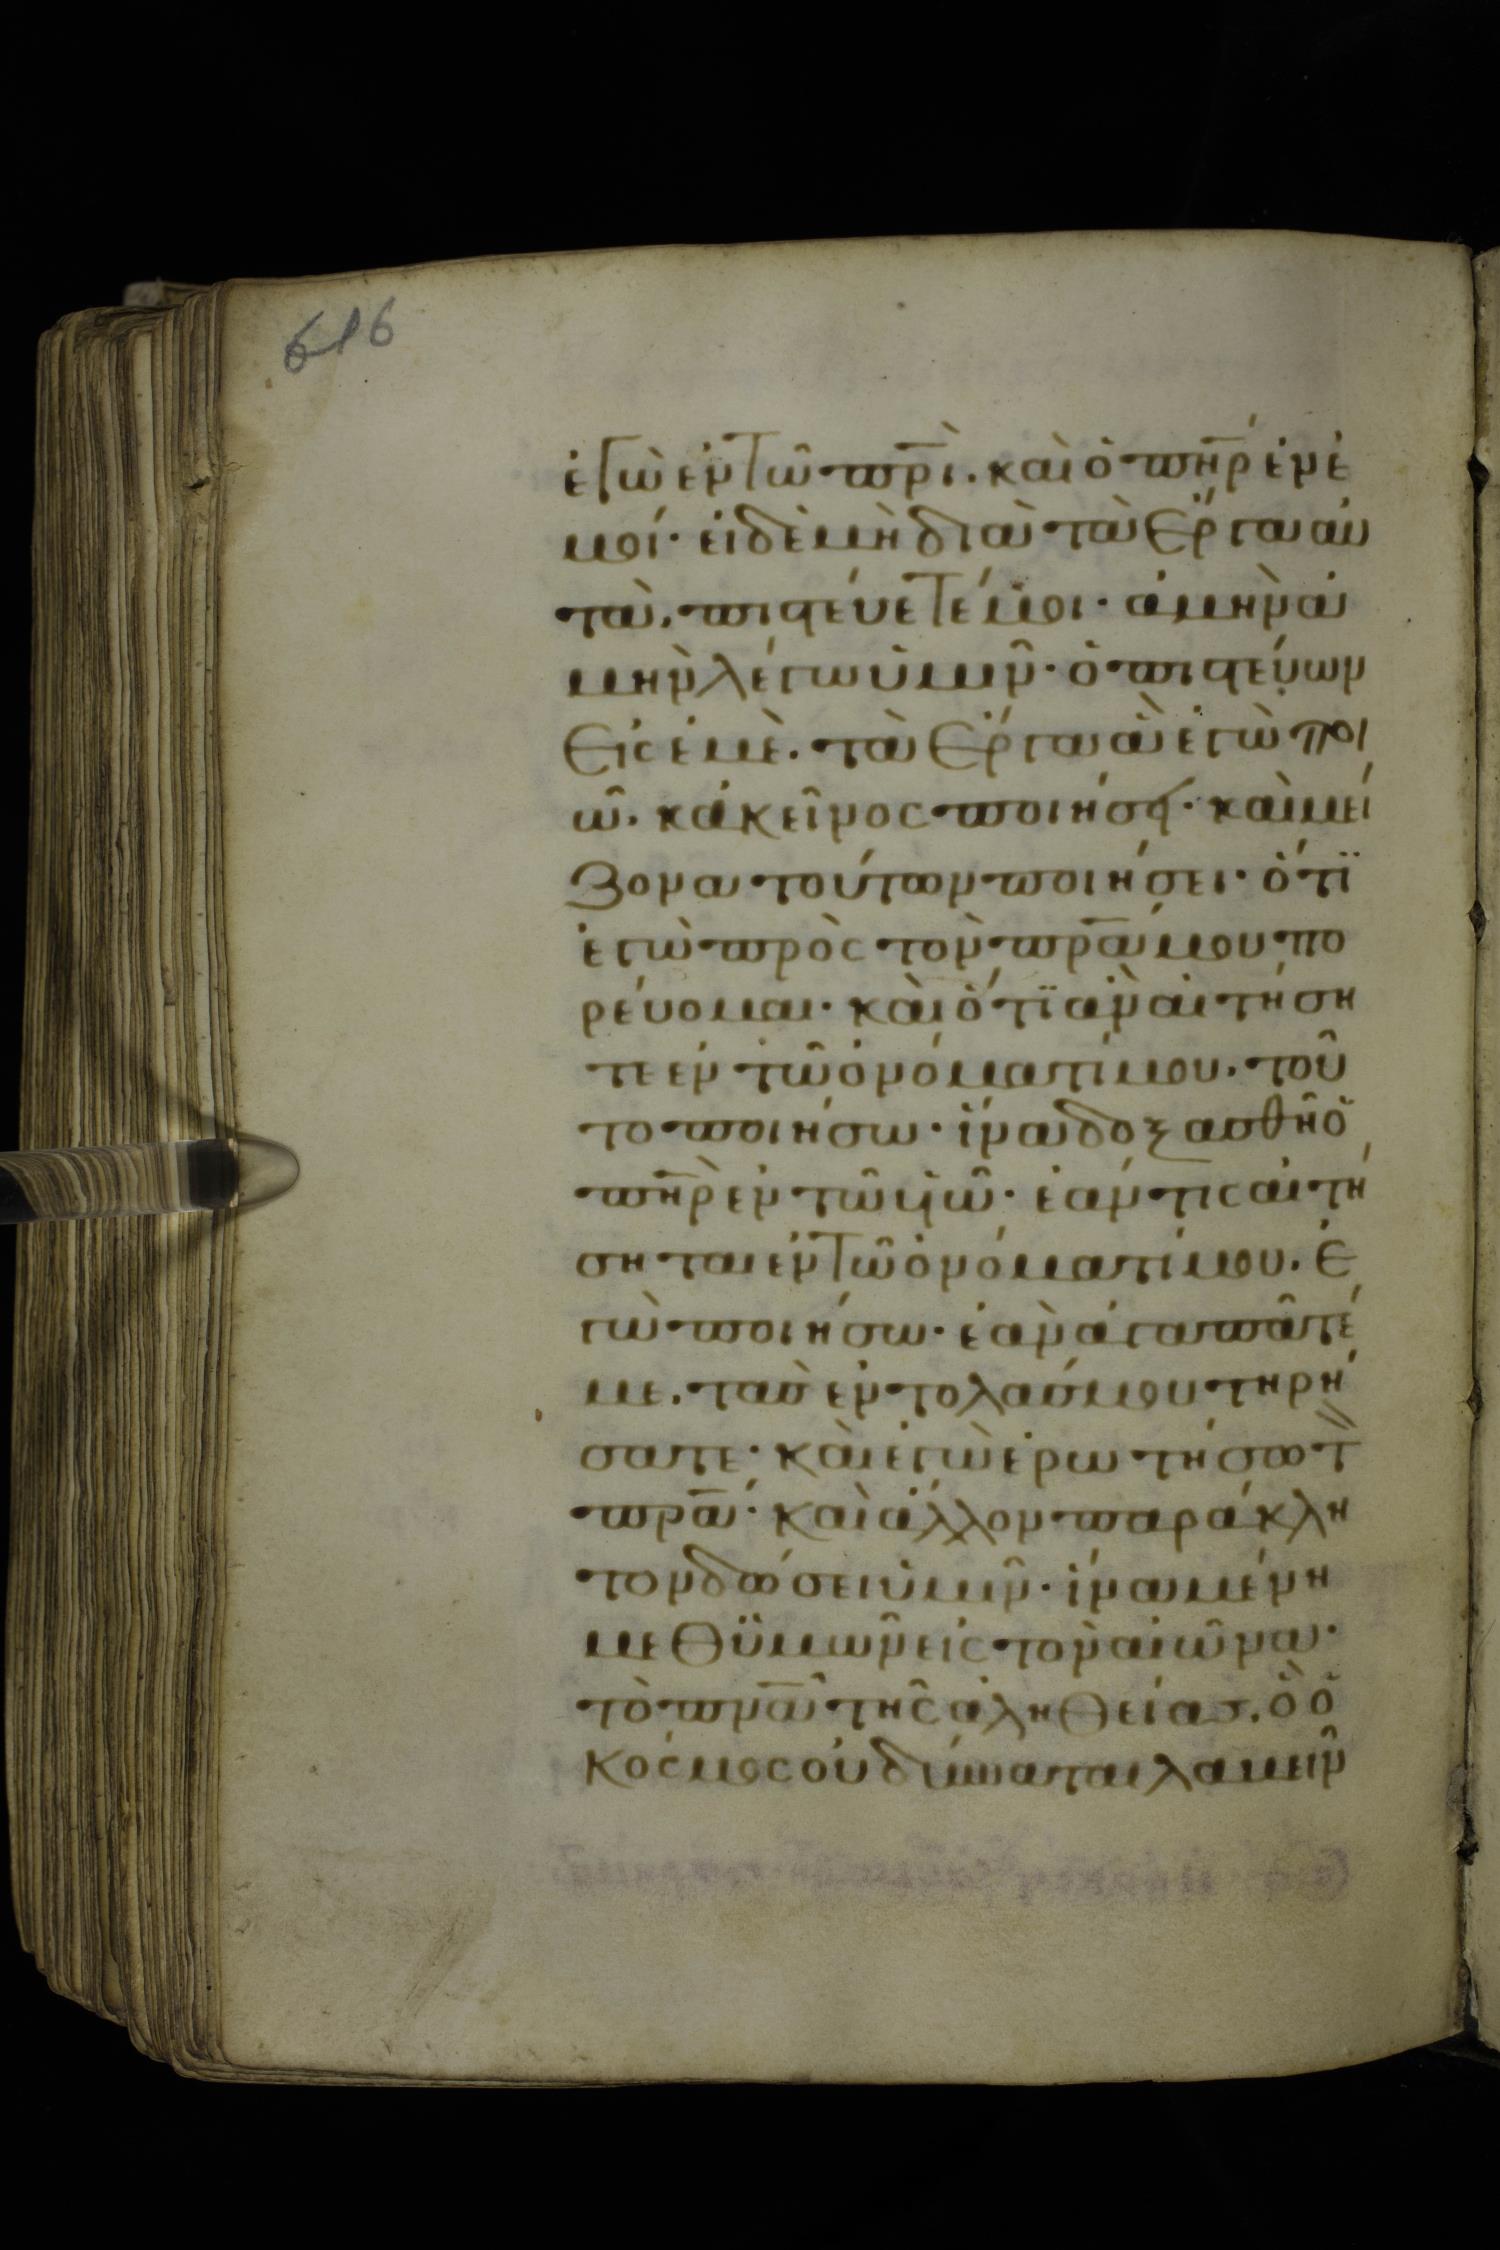 616
ἐγὼ ἐν τῶ πρι̅. καὶ ὁ πηρ̅ ἐν ἐ
μοί· εἰ δὲ μὴ διὰ τὰ ἔργα αὐ
τὰ, πιστεύετέ μοι· ἀμὴν ἀ
μὴν λέγω ὑμῖν· ὁ πιστεύων
εἰς ἐμὲ. τὰ ἔργα ἃ ἐγὼ ποι
ῶ. κἀκεῖνος ποιήσει· καὶ μεί
ζονα τούτων ποιήσει· ὅτϊ
ἐγὼ πρὸς τὸν πρα̅ μου πο
ρεύομαι· καὶ ὅτϊ ἂν αἰτήση
τε ἐν τῶ ὀνόματί μου. τοῦ
το ποιήσω· ἵνα δοξασθῆ ὁ
πηρ̅ ἐν τῶ υἱῶ· ἐάν τις αἰτή
σηται ἐν τῶ ὀνόματί μου. ἐ
γὼ ποιήσω· ἐὰν ἀγαπᾶτέ
με. τὰς ἐντολάς μου τηρή
σατε· καὶ ἐγὼ ἐρωτήσω τ
πρα̅· καὶ ἄλλον παράκλη
τον δώσει ὑμῖν· ἵνα μένη
μεθ ϋμῶν εἰς τὸν αἰῶνα·
τὸ πνα̅ τῆς ἀληθείας. ὃ ὁ
κόσμος οὐ δύναται λαβεῖν